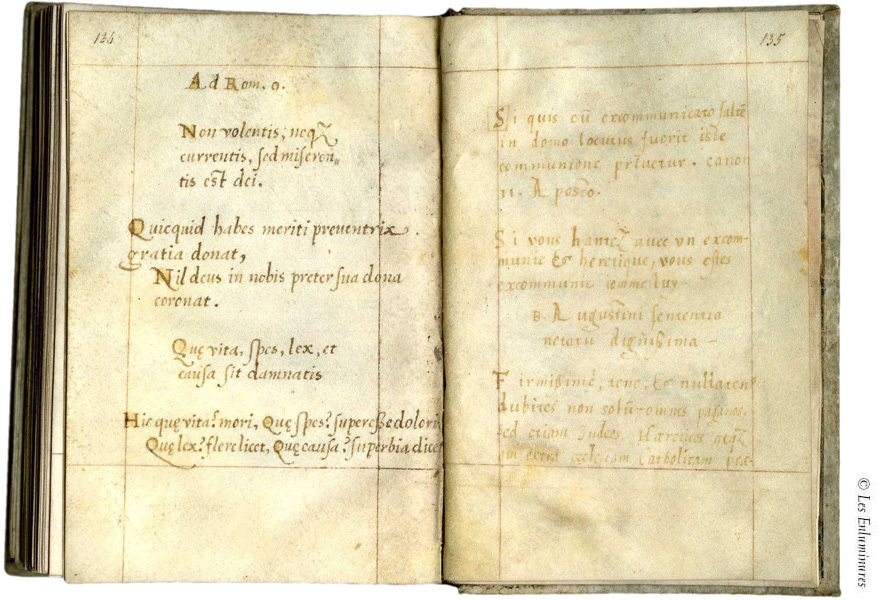 134
Ad Rom. 9.
Non volentis, neqʒ
currentis, sed miseren„
tis est dei.
Quicquid habes meriti preventrix
gratia donat,
Nil deus in nobis preter sua dona
coronat.
Quę vita, spes, lex, et
causa sit damnatis
Hic quę vita? mori, Quę spes? superesse dolori
Quę lex? flere licet, Quę causa? superbia dicet
135
Si quis cū excommunicato saltē
in domo locutus fuerit iste
communione privetur. canon
11. Aposto.
Si vous hantez avec vn excom-
munie & heretique, vous estes
excommunie comme luy
B. Augustini sententia
notatu dignissima -
Firmissime, tene, & nullaten
dubites non solū omnis paganos,
sed etiam Judeos Haereticos atqʒ
ecclesiam Catholicam
© Les Enluminures